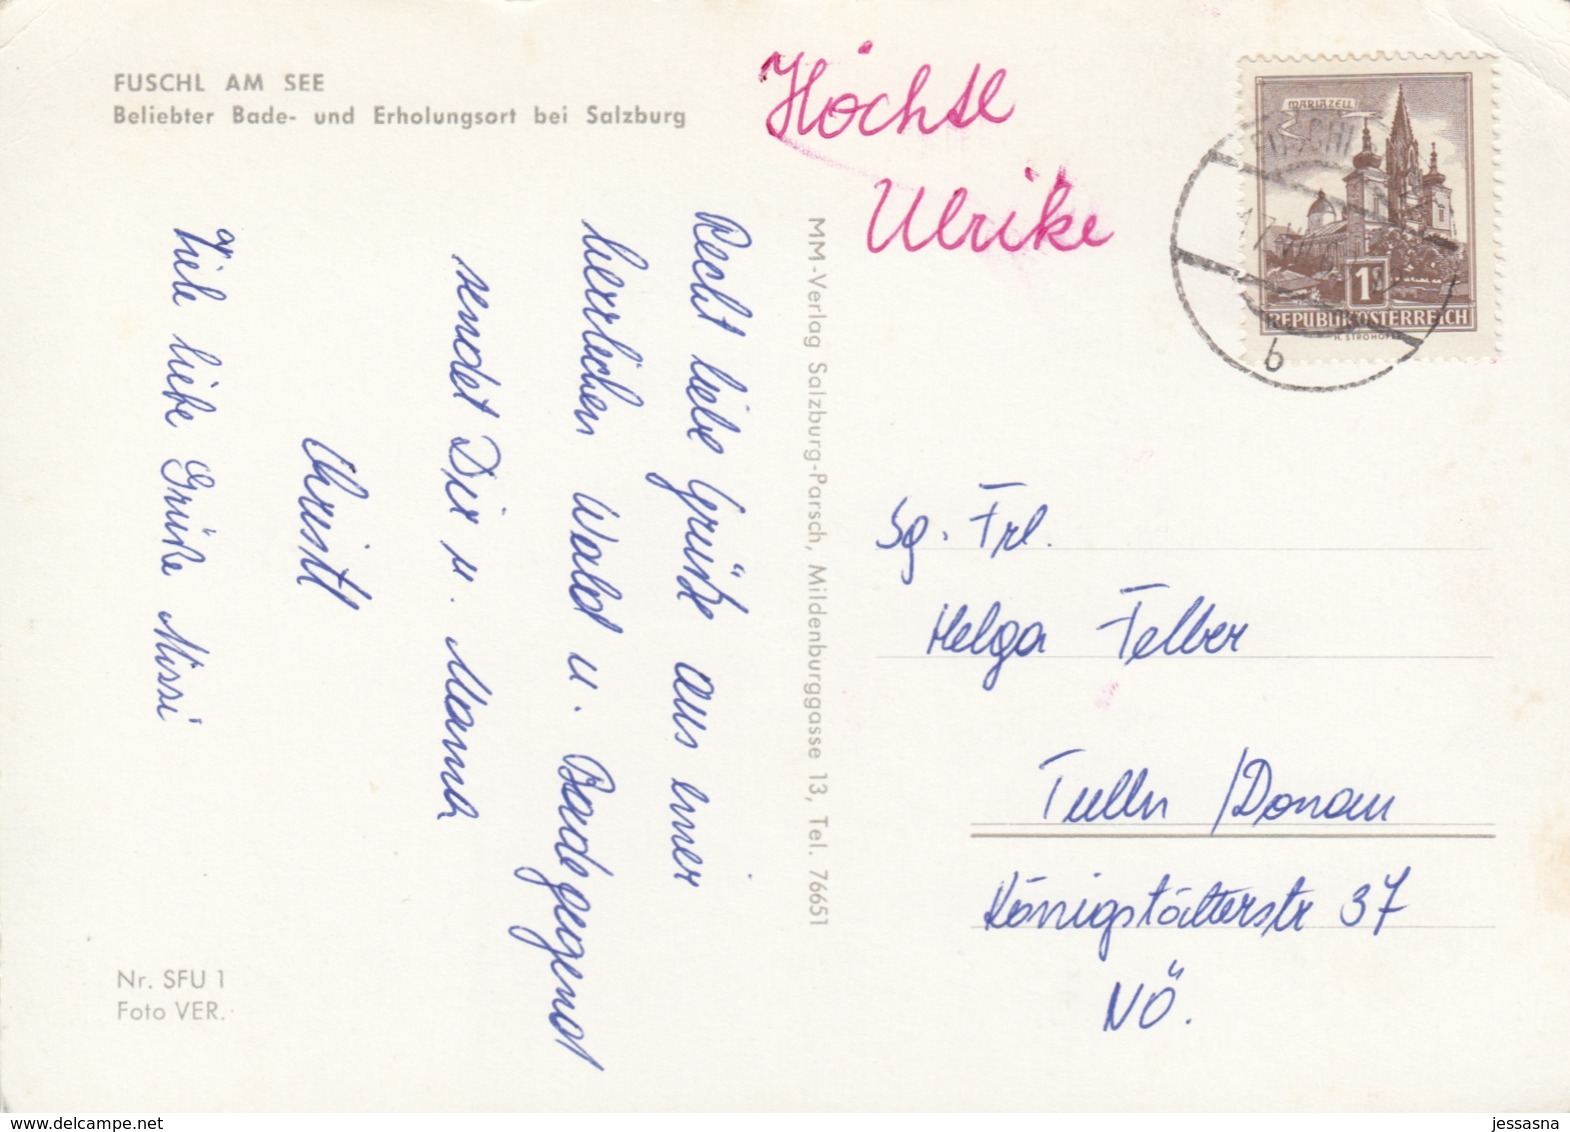 FUSCHL AM SEE
Beliebter Bade- und Erholungsort bei Salzburg
Höchtl
Ulrike
Recht liebe Grüße aus einer
herrlichen Wald u. Badegegend
sendet Dir u. Mama
Christl
Viele liebe Grüße Missi
MM-Verlag Salzburg-Parsch, Mildenburggasse 13, Tel. 76651
MARIAZELL
FUSCHL
17
1S
REPUBLIK ÖSTERREICH
b
Sg. Frl.
Helga Felber
Tulln /Donau
Königstätterstr 37
NÖ.
Nr. SFU 1
Foto VER.
www.delcampe.net
jessasna